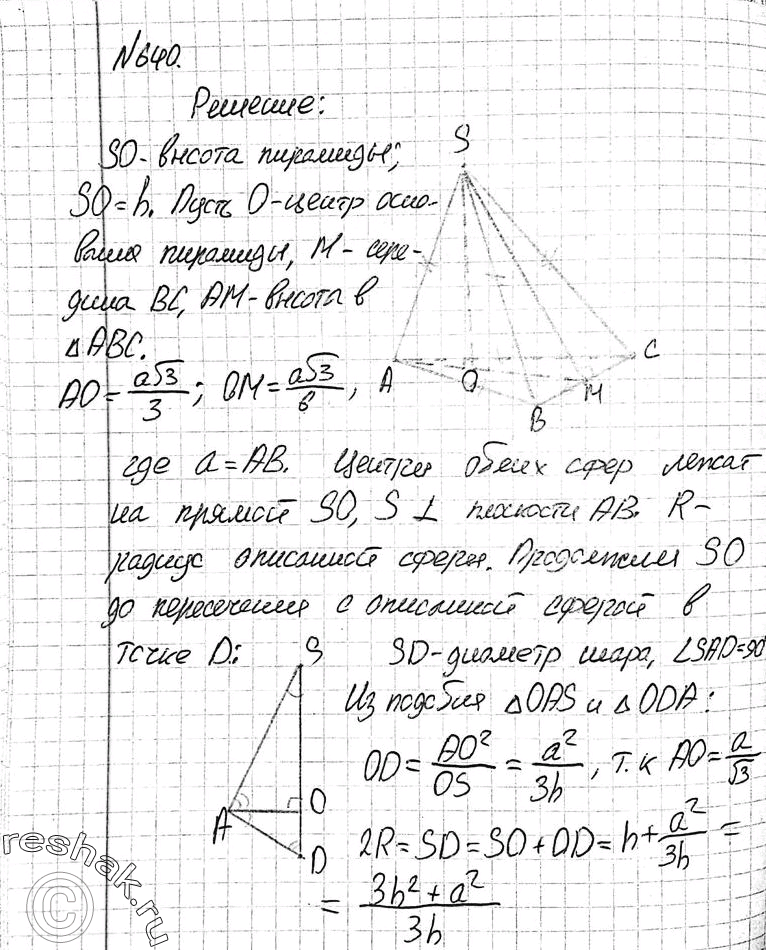 N640.
Решение:
SO- высота пирамиды;
SO=h. Пусть O-центр осно-
вания пирамиды, M- сере-
дина BC, AM-высота в
△ABC.
AO = a√3/3; OM = a√3/6,
S
A
O
B
M
C
где a=AB. Центры обеих сфер лежат
на прямой SO, S ⊥ плоскости AB. R-
радиус описанной сферы. Продолжим SO
до пересечения с описанной сферой в
точке D:
SD-диаметр шара, ∠SAD=90
Из подобия △OAS и △ODA:
OD = AO²/OS = a²/3h, т.к AO = a/√3
2R = SD = SO + OD = h + a²/3h =
= 3h² + a²/3h
S
O
A
D
reshak.ru
©